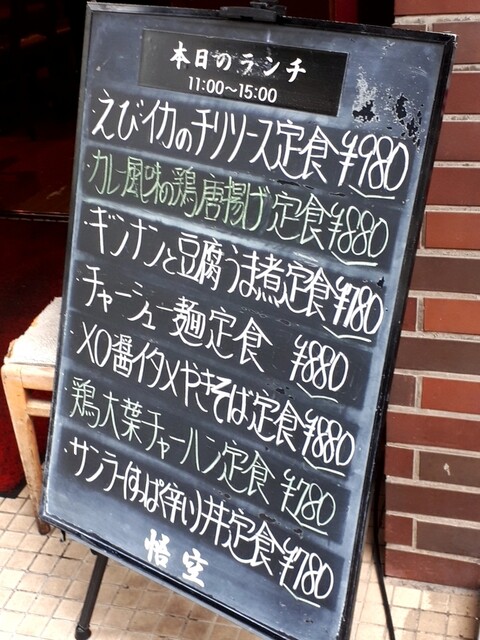 本日のランチ
11:00〜15:00
えびイカのチリソース定食 ¥980
カレー風味の鶏唐揚げ定食 ¥880
ギンナンと豆腐うま煮定食 ¥780
チャーシュー麺定食 ¥880
XO醤イタメやきそば定食 ¥880
鶏大葉チャーハン定食 ¥780
サンラー(すっぱ辛い)丼定食 ¥780
悟空